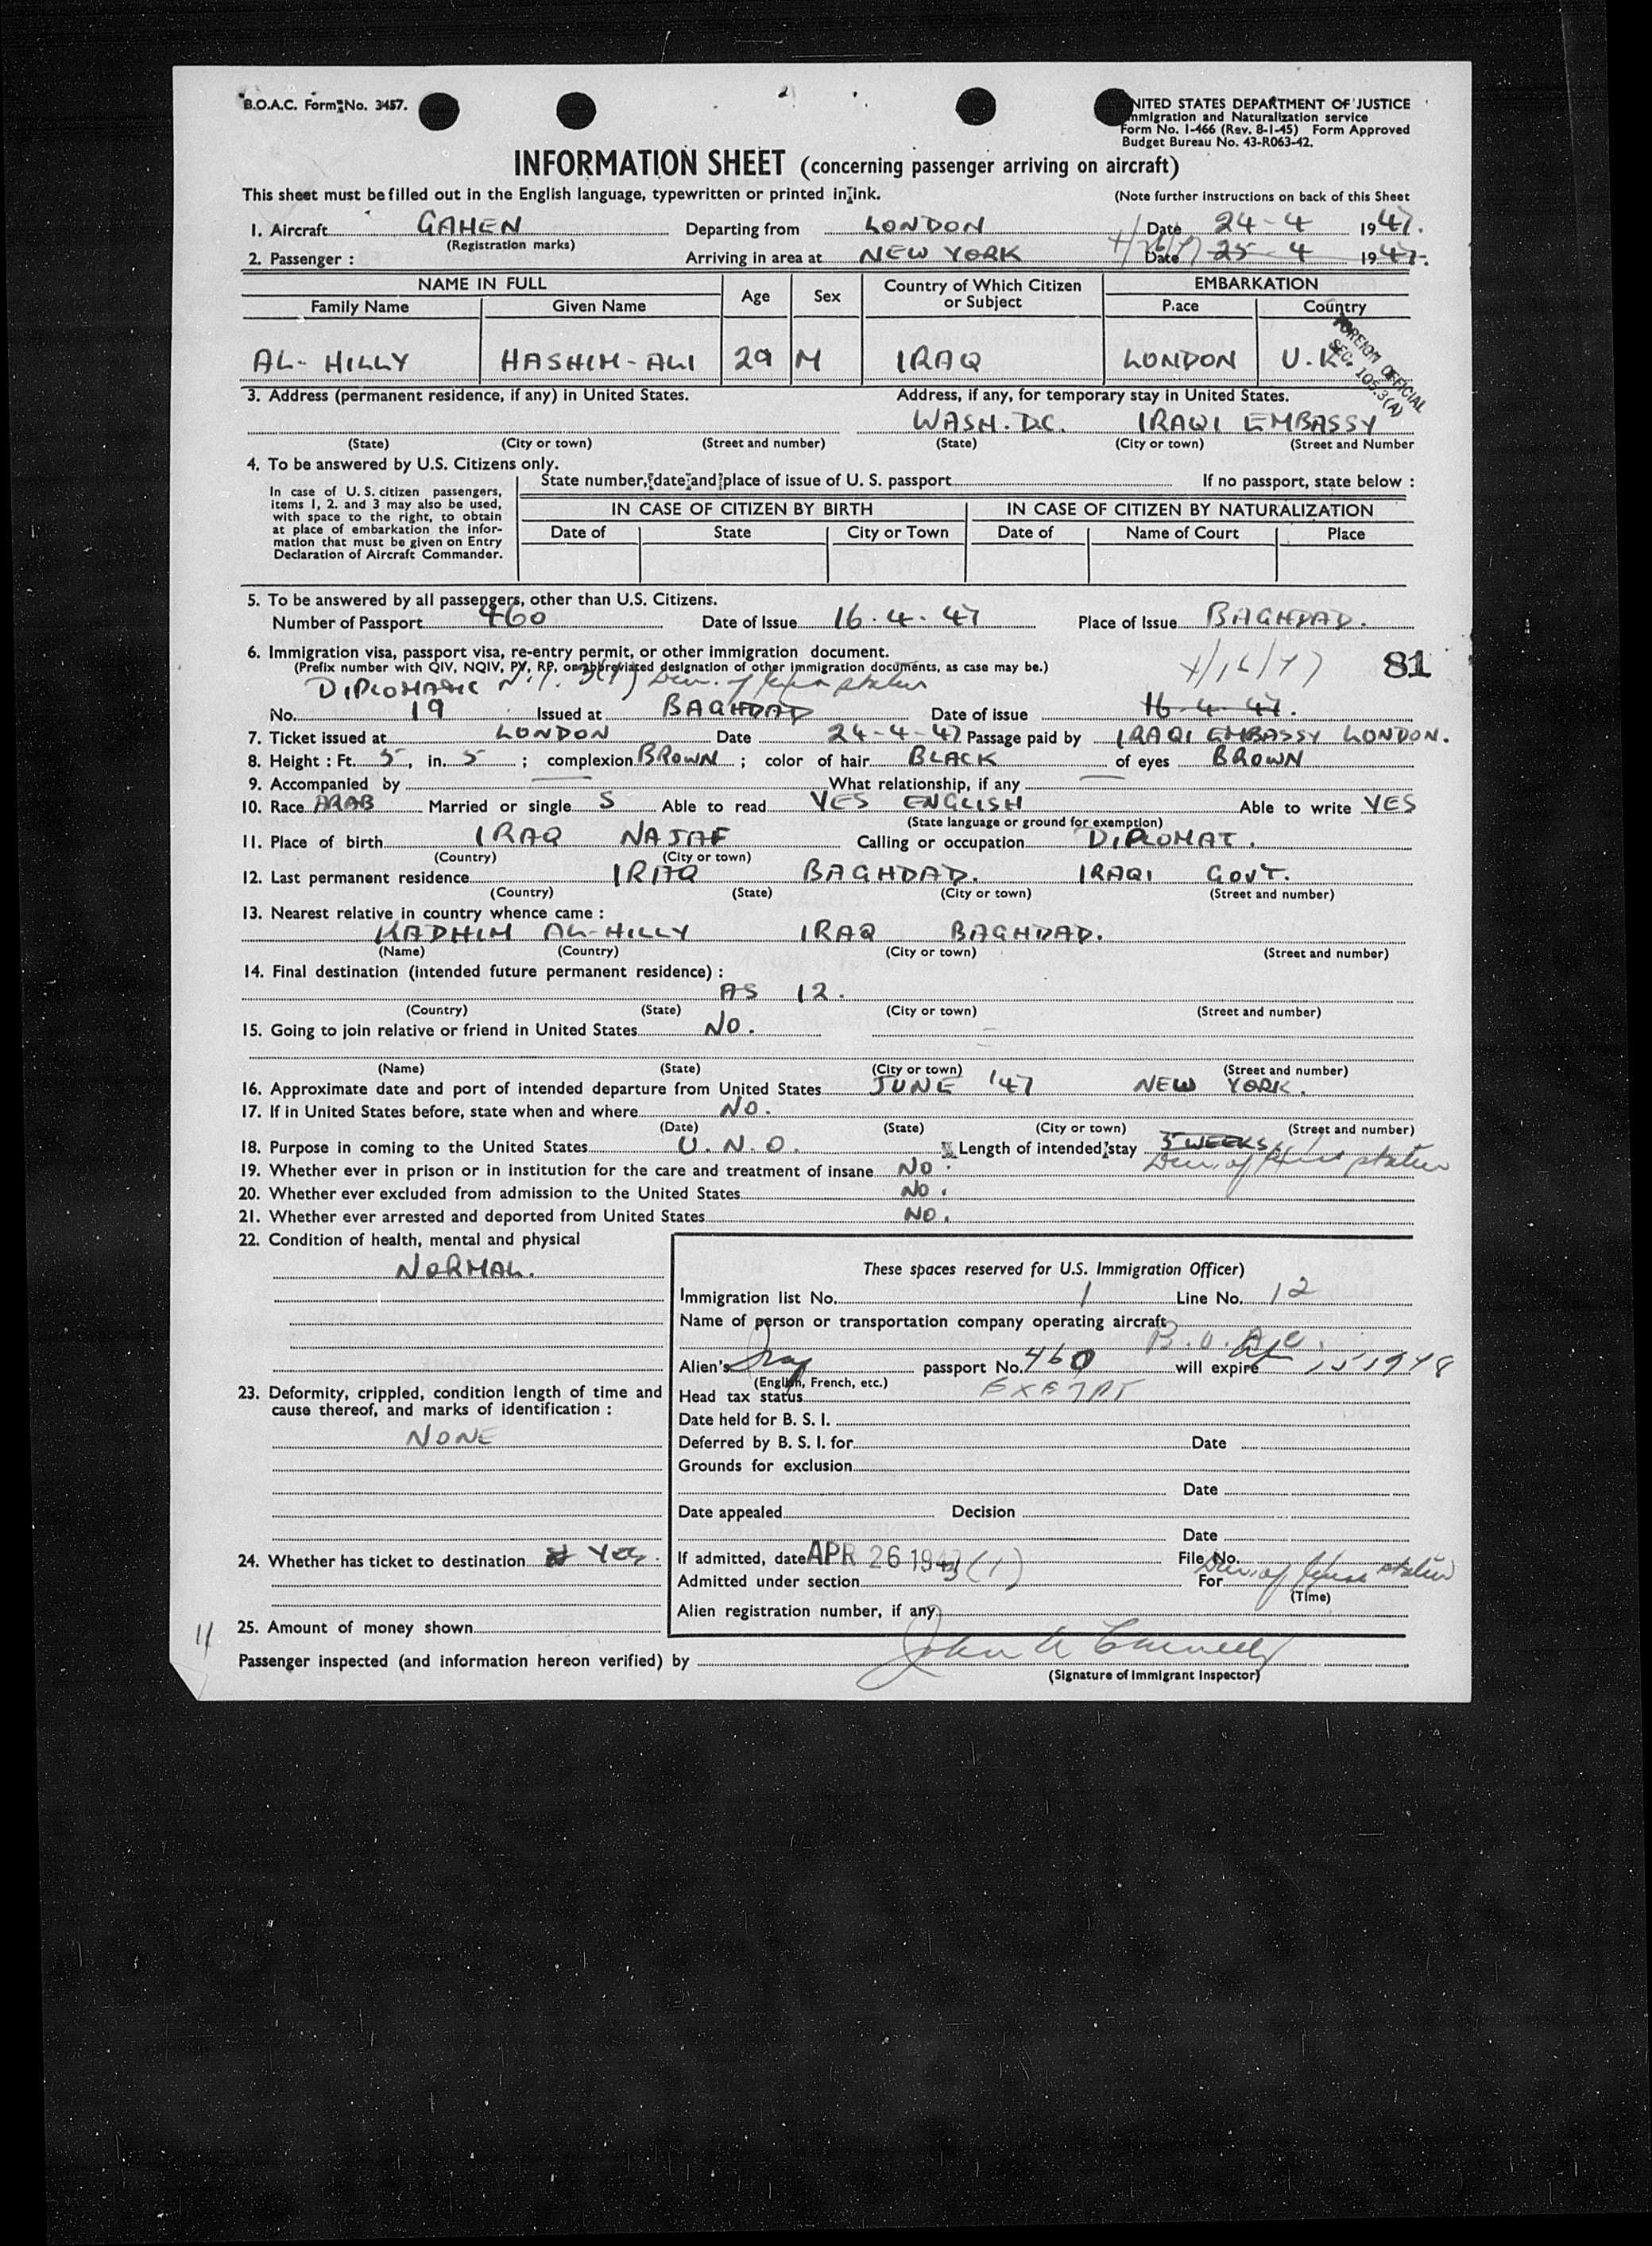 B.O.A.C. Form No. 3457.
UNITED STATES DEPARTMENT OF JUSTICE
Immigration and Naturalization service
Form No. I-466 (Rev. 8-1-45) Form Approved
Budget Bureau No. 43-R063-42.
INFORMATION SHEET (concerning passenger arriving on aircraft)
This sheet must be filled out in the English language, typewritten or printed in ink. (Note further instructions on back of this Sheet
1. Aircraft GAHEN Departing from LONDON Date 24-4 1947.
(Registration marks)
2. Passenger : Arriving in area at NEW YORK 4/26/47 Date 25-4 1947.
NAME IN FULL Age Sex Country of Which Citizen or Subject EMBARKATION
Family Name Given Name Place Country
AL-HILLY HASHIM-ALI 29 M IRAQ LONDON U.K.
FOREIGN OFFICIAL
SEC. 105.3(A)
3. Address (permanent residence, if any) in United States. Address, if any, for temporary stay in United States.
WASH. D.C. IRAQI EMBASSY
(State) (City or town) (Street and number) (State) (City or town) (Street and Number
4. To be answered by U.S. Citizens only.
State number, date and place of issue of U. S. passport If no passport, state below :
In case of U. S. citizen passengers,
items 1, 2. and 3 may also be used,
with space to the right, to obtain
at place of embarkation the infor-
mation that must be given on Entry
Declaration of Aircraft Commander.
IN CASE OF CITIZEN BY BIRTH IN CASE OF CITIZEN BY NATURALIZATION
Date of State City or Town Date of Name of Court Place
5. To be answered by all passengers, other than U.S. Citizens.
Number of Passport 460 Date of Issue 16.4.47 Place of Issue BAGHDAD.
6. Immigration visa, passport visa, re-entry permit, or other immigration document.
(Prefix number with QIV, NQIV, PV, RP, or abbreviated designation of other immigration documents, as case may be.)
4/16/47 81
DIPLOMATIC 3(1) Dur. of status
No. 19 Issued at BAGHDAD Date of issue 16.4.47.
7. Ticket issued at LONDON Date 24-4-47 Passage paid by IRAQI EMBASSY LONDON.
8. Height : Ft. 5, in. 5 ; complexion BROWN ; color of hair BLACK of eyes BROWN
9. Accompanied by What relationship, if any
10. Race ARAB Married or single S Able to read YES ENGLISH Able to write YES
(State language or ground for exemption)
11. Place of birth IRAQ NAJAF Calling or occupation DIPLOMAT.
(Country) (City or town)
12. Last permanent residence IRAQ BAGHDAD. IRAQI GOVT.
(Country) (State) (City or town) (Street and number)
13. Nearest relative in country whence came :
KADHIM AL-HILLY IRAQ BAGHDAD.
(Name) (Country) (City or town) (Street and number)
14. Final destination (intended future permanent residence) :
AS 12.
(Country) (State) (City or town) (Street and number)
15. Going to join relative or friend in United States NO.
(Name) (State) (City or town) (Street and number)
16. Approximate date and port of intended departure from United States JUNE '47 NEW YORK.
17. If in United States before, state when and where NO.
(Date) (State) (City or town) (Street and number)
18. Purpose in coming to the United States U.N.O. Length of intended stay 5 WEEKS
Dur. of status
19. Whether ever in prison or in institution for the care and treatment of insane NO.
20. Whether ever excluded from admission to the United States NO.
21. Whether ever arrested and deported from United States NO.
22. Condition of health, mental and physical
NORMAL.
These spaces reserved for U.S. Immigration Officer)
Immigration list No. 1 Line No. 12
Name of person or transportation company operating aircraft
B.O.A.C.
Alien's Iraq passport No. 460 will expire 15 1948
(English, French, etc.)
Head tax status EXEMPT
Date held for B. S. I.
Deferred by B. S. I. for Date
Grounds for exclusion
Date
Date appealed Decision
Date
If admitted, date APR 26 1947 File No.
Admitted under section 3(1) For Dur. of status
(Time)
Alien registration number, if any
23. Deformity, crippled, condition length of time and
cause thereof, and marks of identification :
NONE
24. Whether has ticket to destination Yes.
25. Amount of money shown
11
Passenger inspected (and information hereon verified) by John
(Signature of Immigrant Inspector)